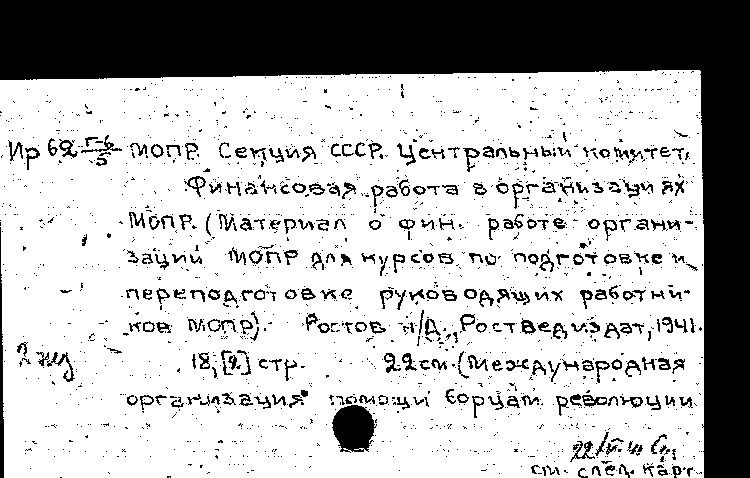 Ир 62 Г-6/5 МОПР. Секция СССР. Центральный комитет.
Финансовая работа в организациях
МОПР. (Материал о фин. работе органи-
зации МОПР для курсов по подготовке и
переподготовке руководящих работни-
ков МОПР). Ростов н/Д., Роствед издат, 1941.
2 экз
18, [2] стр. 22 см. (Международная
организация помощи борцам революции
22/IV.41
см. след. карт